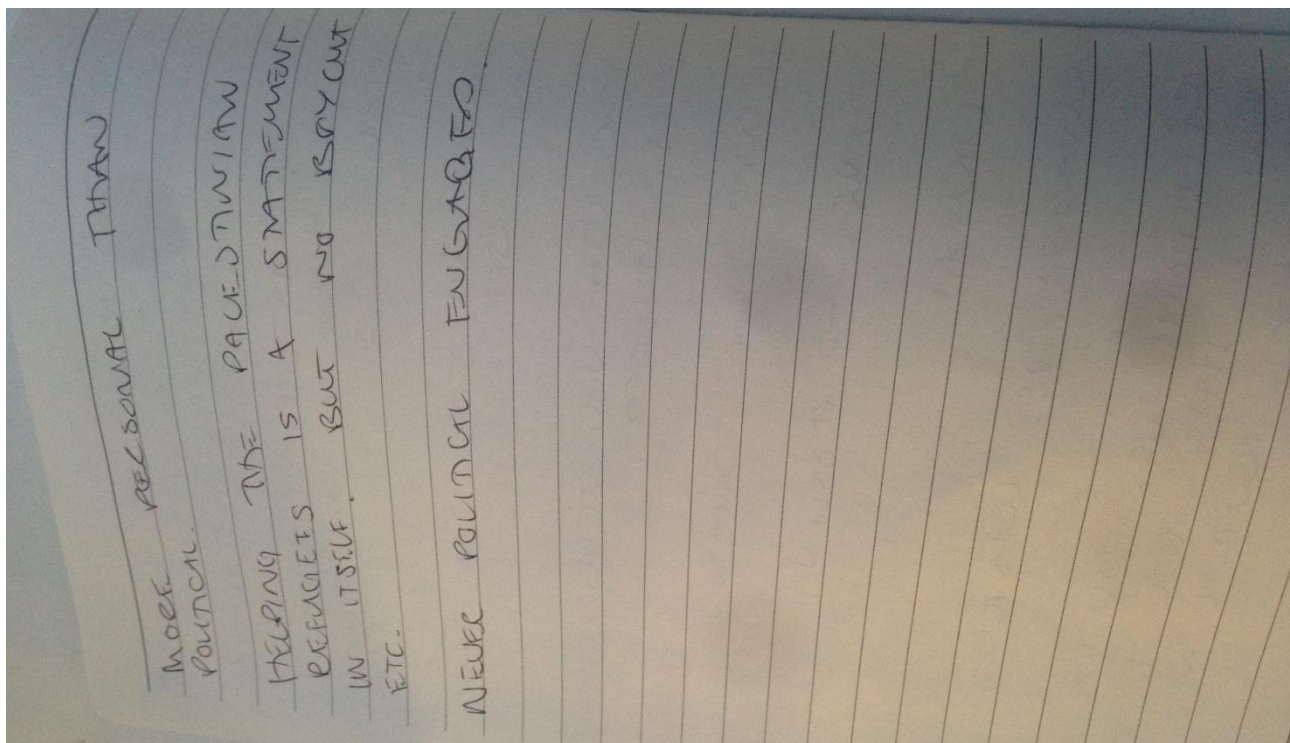 MORE PERSONAL THAN
POLITICAL.
HELPING THE PALESTINIAN
REFUGEES IS A STATEMENT
IN ITSELF. BUT NO BOYCUT
ETC.
NEVER POLITICAL ENGAGED.